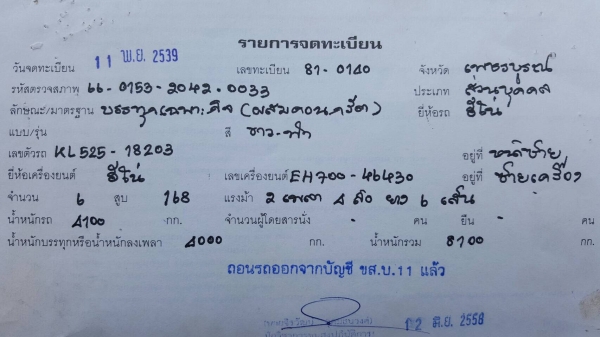 รายการจดทะเบียน
วันจดทะเบียน 11 พ.ย. 2539 เลขทะเบียน 81-0140 จังหวัด เพชรบูรณ์
รหัสตรวจสภาพ 66-0153-2042-0033 ประเภท ส่วนบุคคล
ลักษณะ/มาตรฐาน บรรทุกเฉพาะกิจ (ผสมคอนกรีต) ยี่ห้อรถ ฮีโน่
แบบ/รุ่น สี ขาว-ฟ้า
เลขตัวรถ KL525-18203 อยู่ที่ หน้าซ้าย
ยี่ห้อเครื่องยนต์ ฮีโน่ เลขเครื่องยนต์ EH700-46430 อยู่ที่ ซ้ายเครื่อง
จำนวน 6 สูบ 168 แรงม้า 2 เพลา 4 ล้อ ยาง 6 เส้น
น้ำหนักรถ 4100 กก. จำนวนผู้โดยสารนั่ง - คน ยืน - คน
น้ำหนักบรรทุกหรือน้ำหนักลงเพลา 4000 กก. น้ำหนักรวม 8100 กก.
ถอนรถออกจากบัญชี ขส.บ.11 แล้ว
02 มิ.ย. 2558